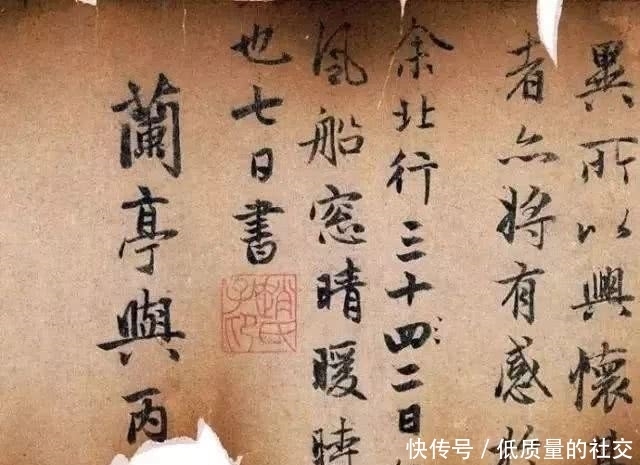 異所以興懷
者亦將有感
余北行三十四二日
風船窓晴暖時
也七日書
趙氏子昂
蘭亭與丙
快传号/低质量的社交